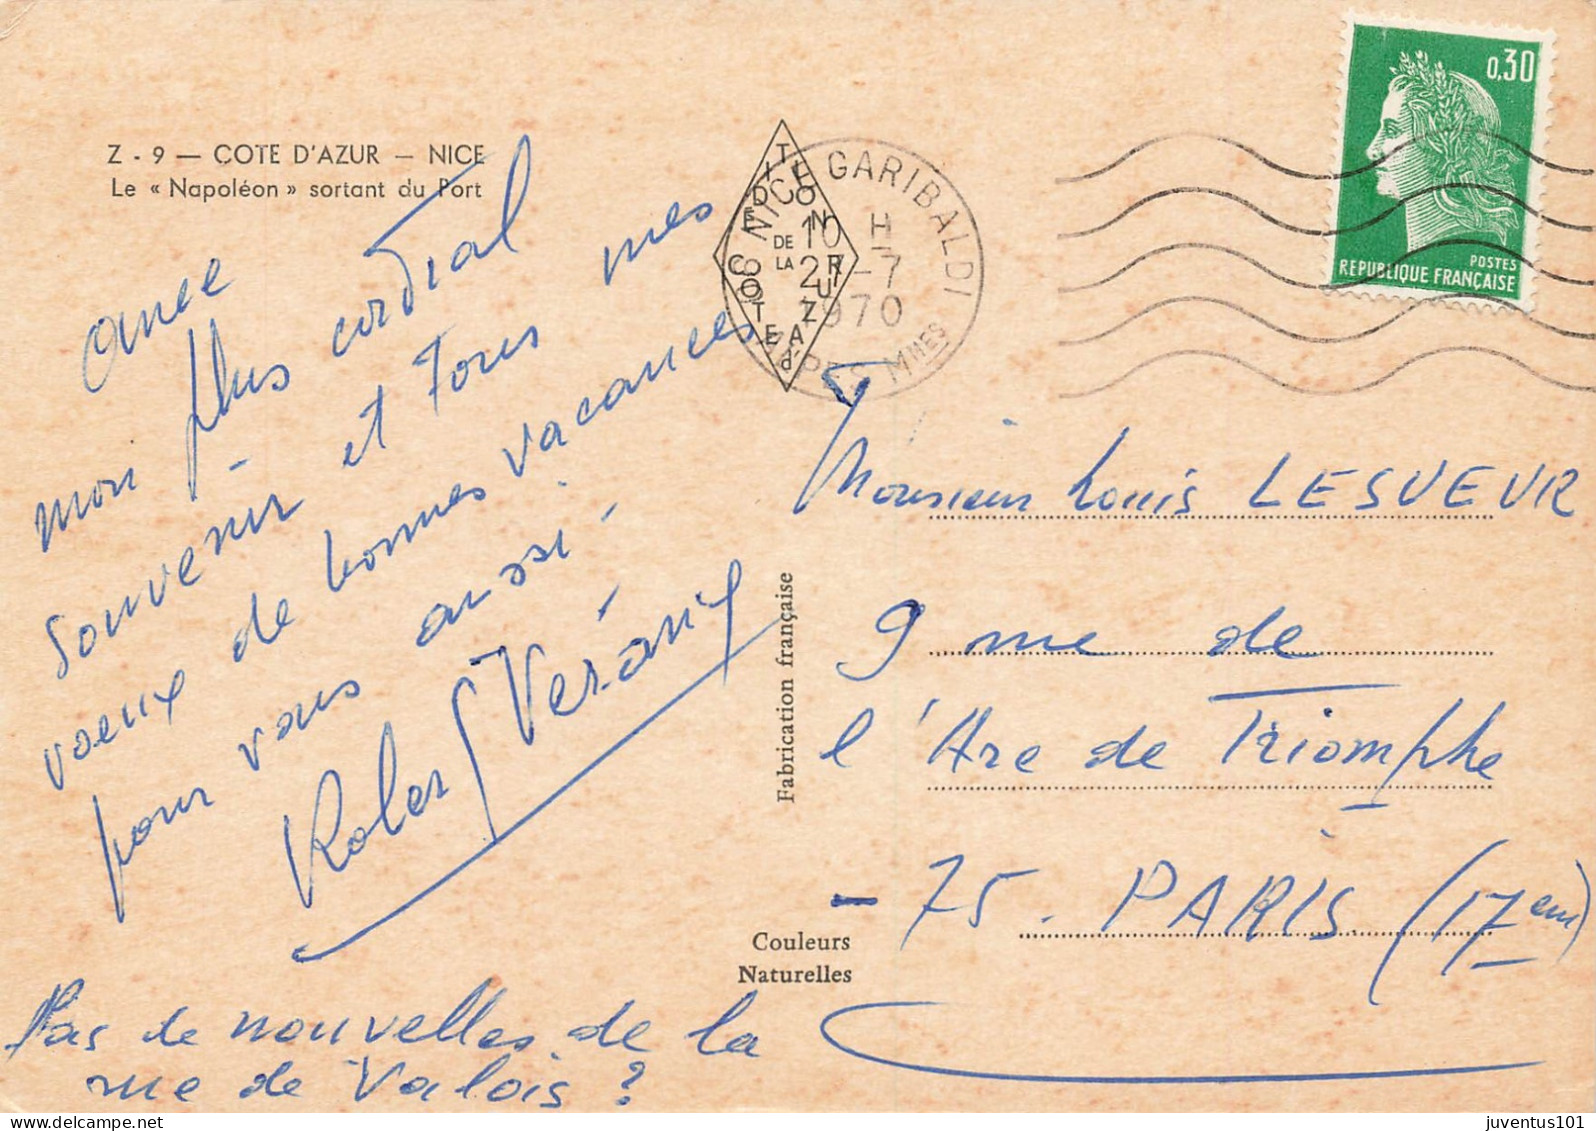 Z - 9 — COTE D'AZUR — NICE
Le « Napoléon » sortant du Port
avec
mon plus cordial
souvenir et tous mes
voeux de bonnes vacances
pour vous aussi.
Robert Vérany
Pas de nouvelles de la
rue de Valois ?
Fabrication française
Couleurs
Naturelles
NICE GARIBALDI
10 H
-7
1970
ALPES MMES
DE
LA
COTE
d'AZUR
0,30
POSTES
REPUBLIQUE FRANÇAISE
Monsieur Louis LESUEUR
9 rue de
l'Arc de Triomphe
- 75 - PARIS (17em)
juventus101